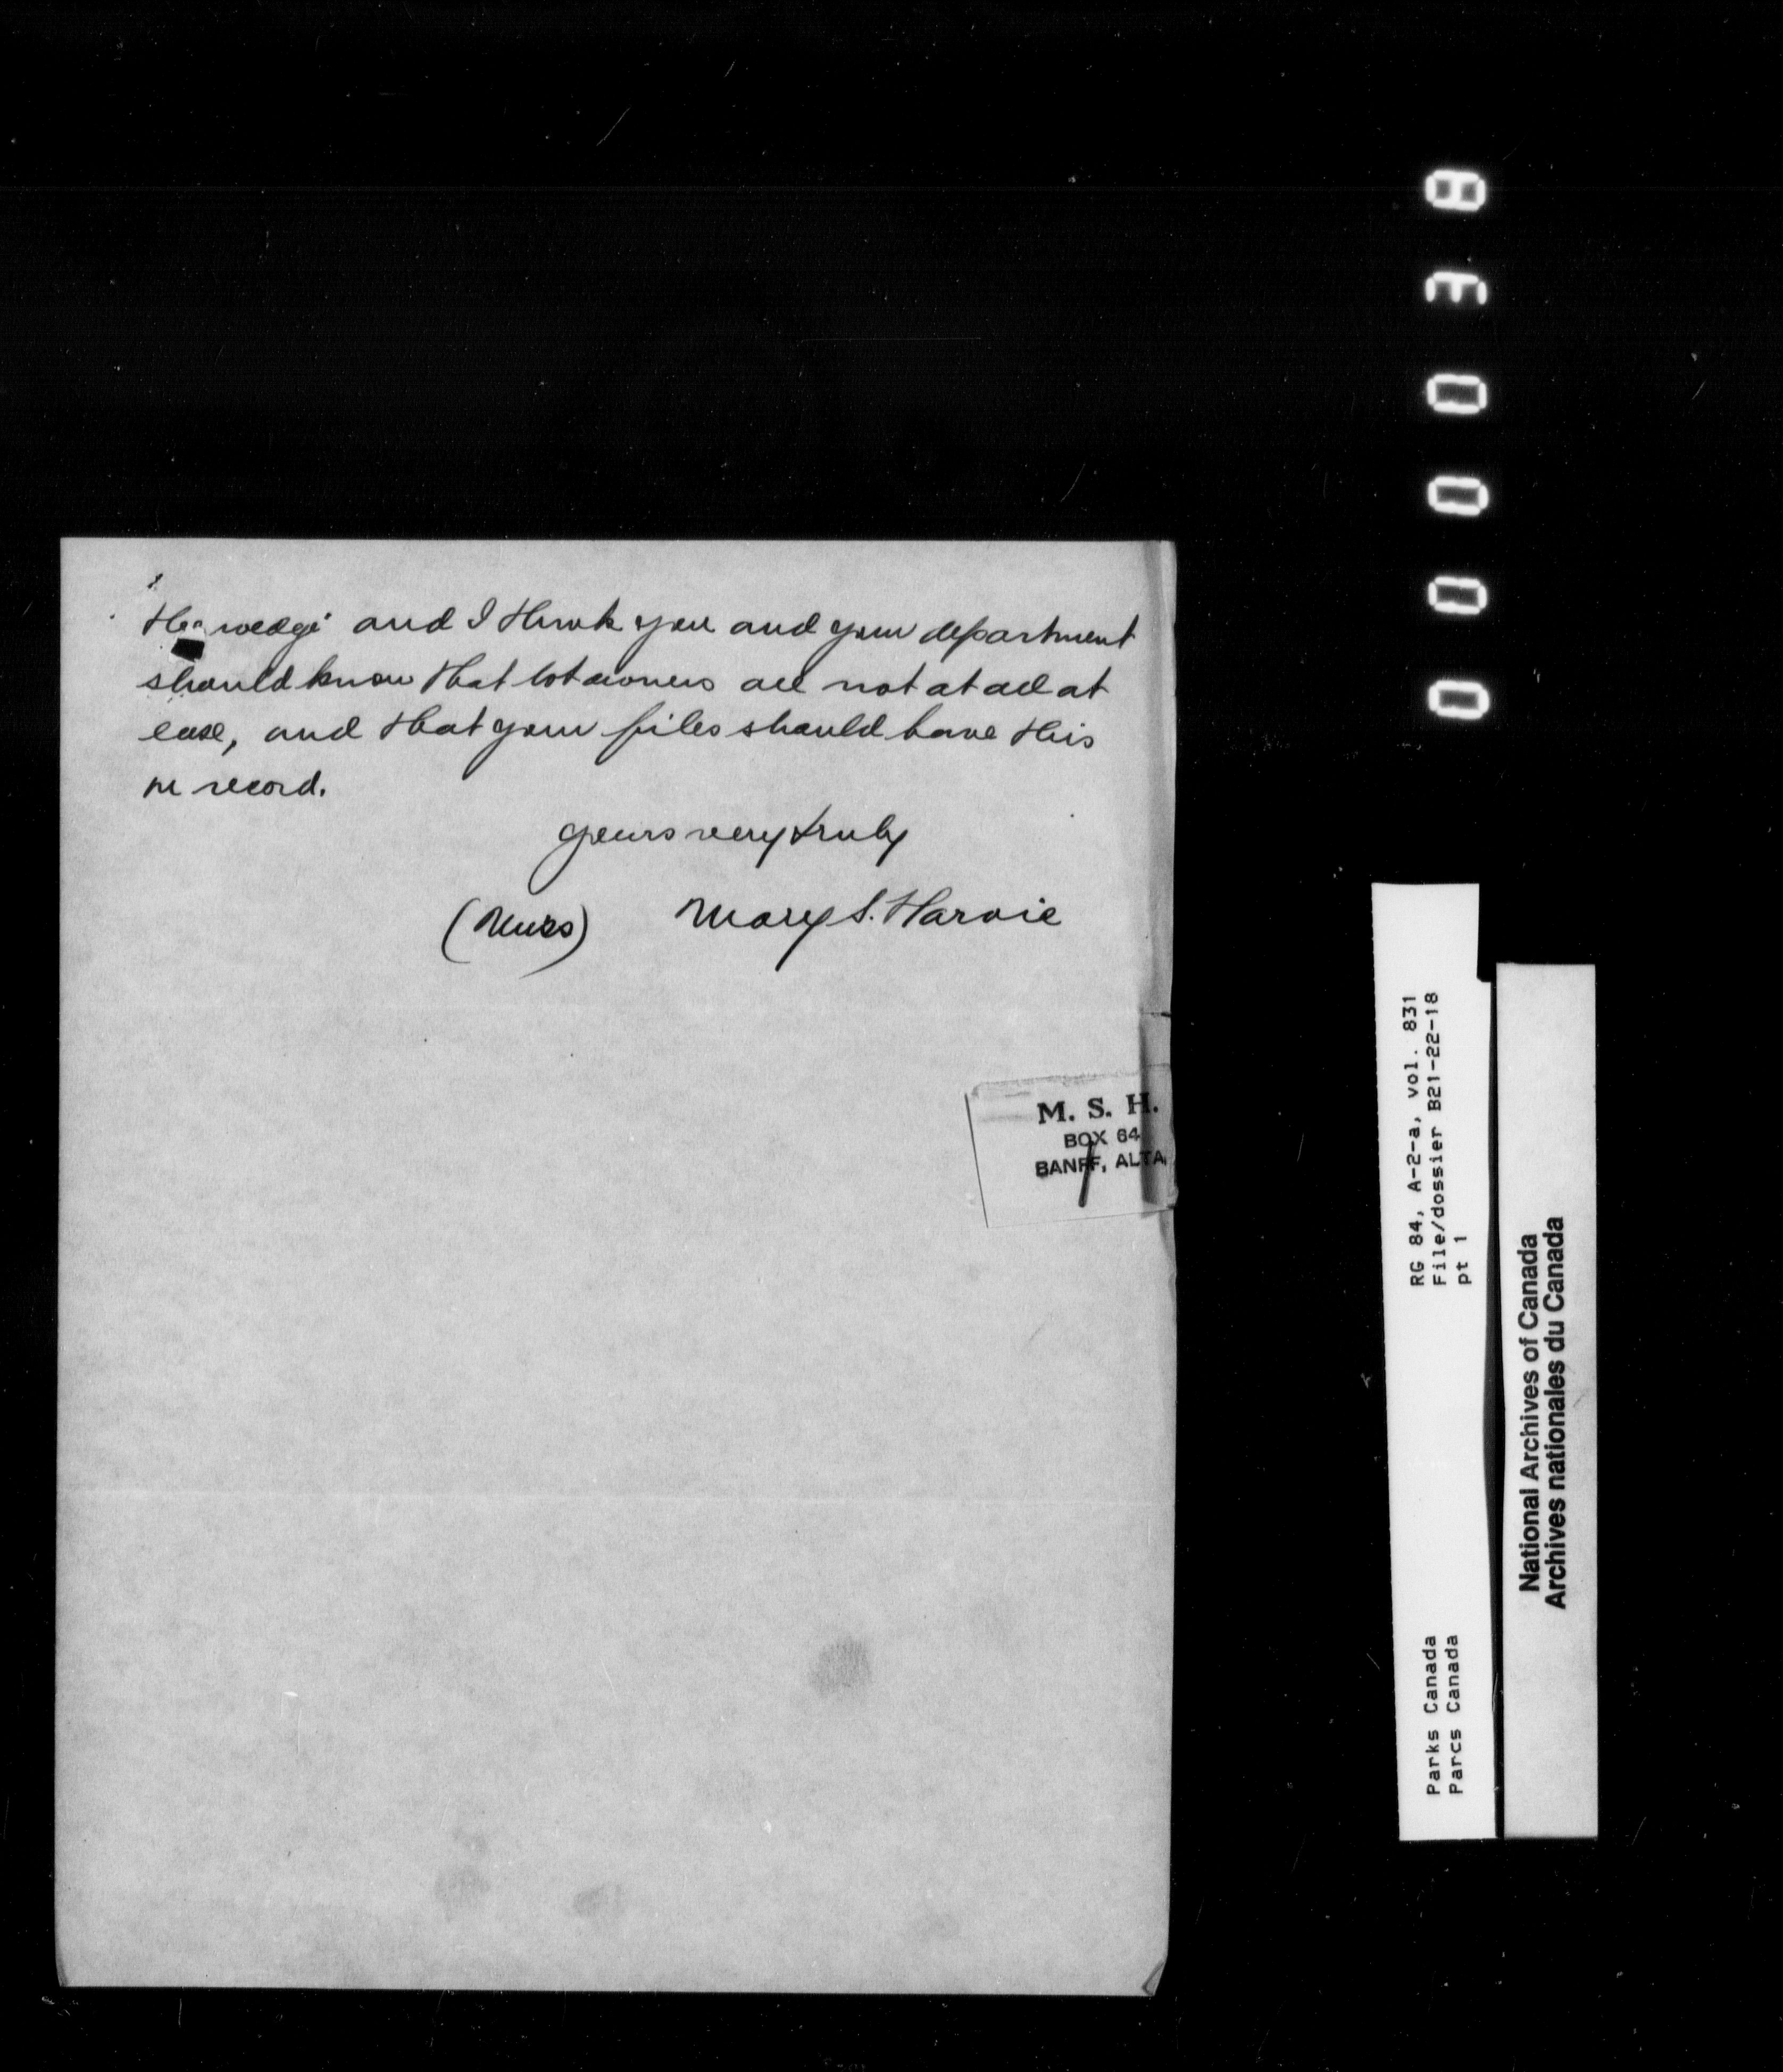 the wedge and I think you and your department
should know that lot owners are not at all at
ease, and that your files should have this
on record.
Yours very truly
(Miss) Mary S. Harvie
M. S. H.
BOX 64
BANFF, ALTA.
000038
RG 84, A-2-a, vol. 831
File/dossier B21-22-18
pt 1
Parks Canada
Parcs Canada
National Archives of Canada
Archives nationales du Canada